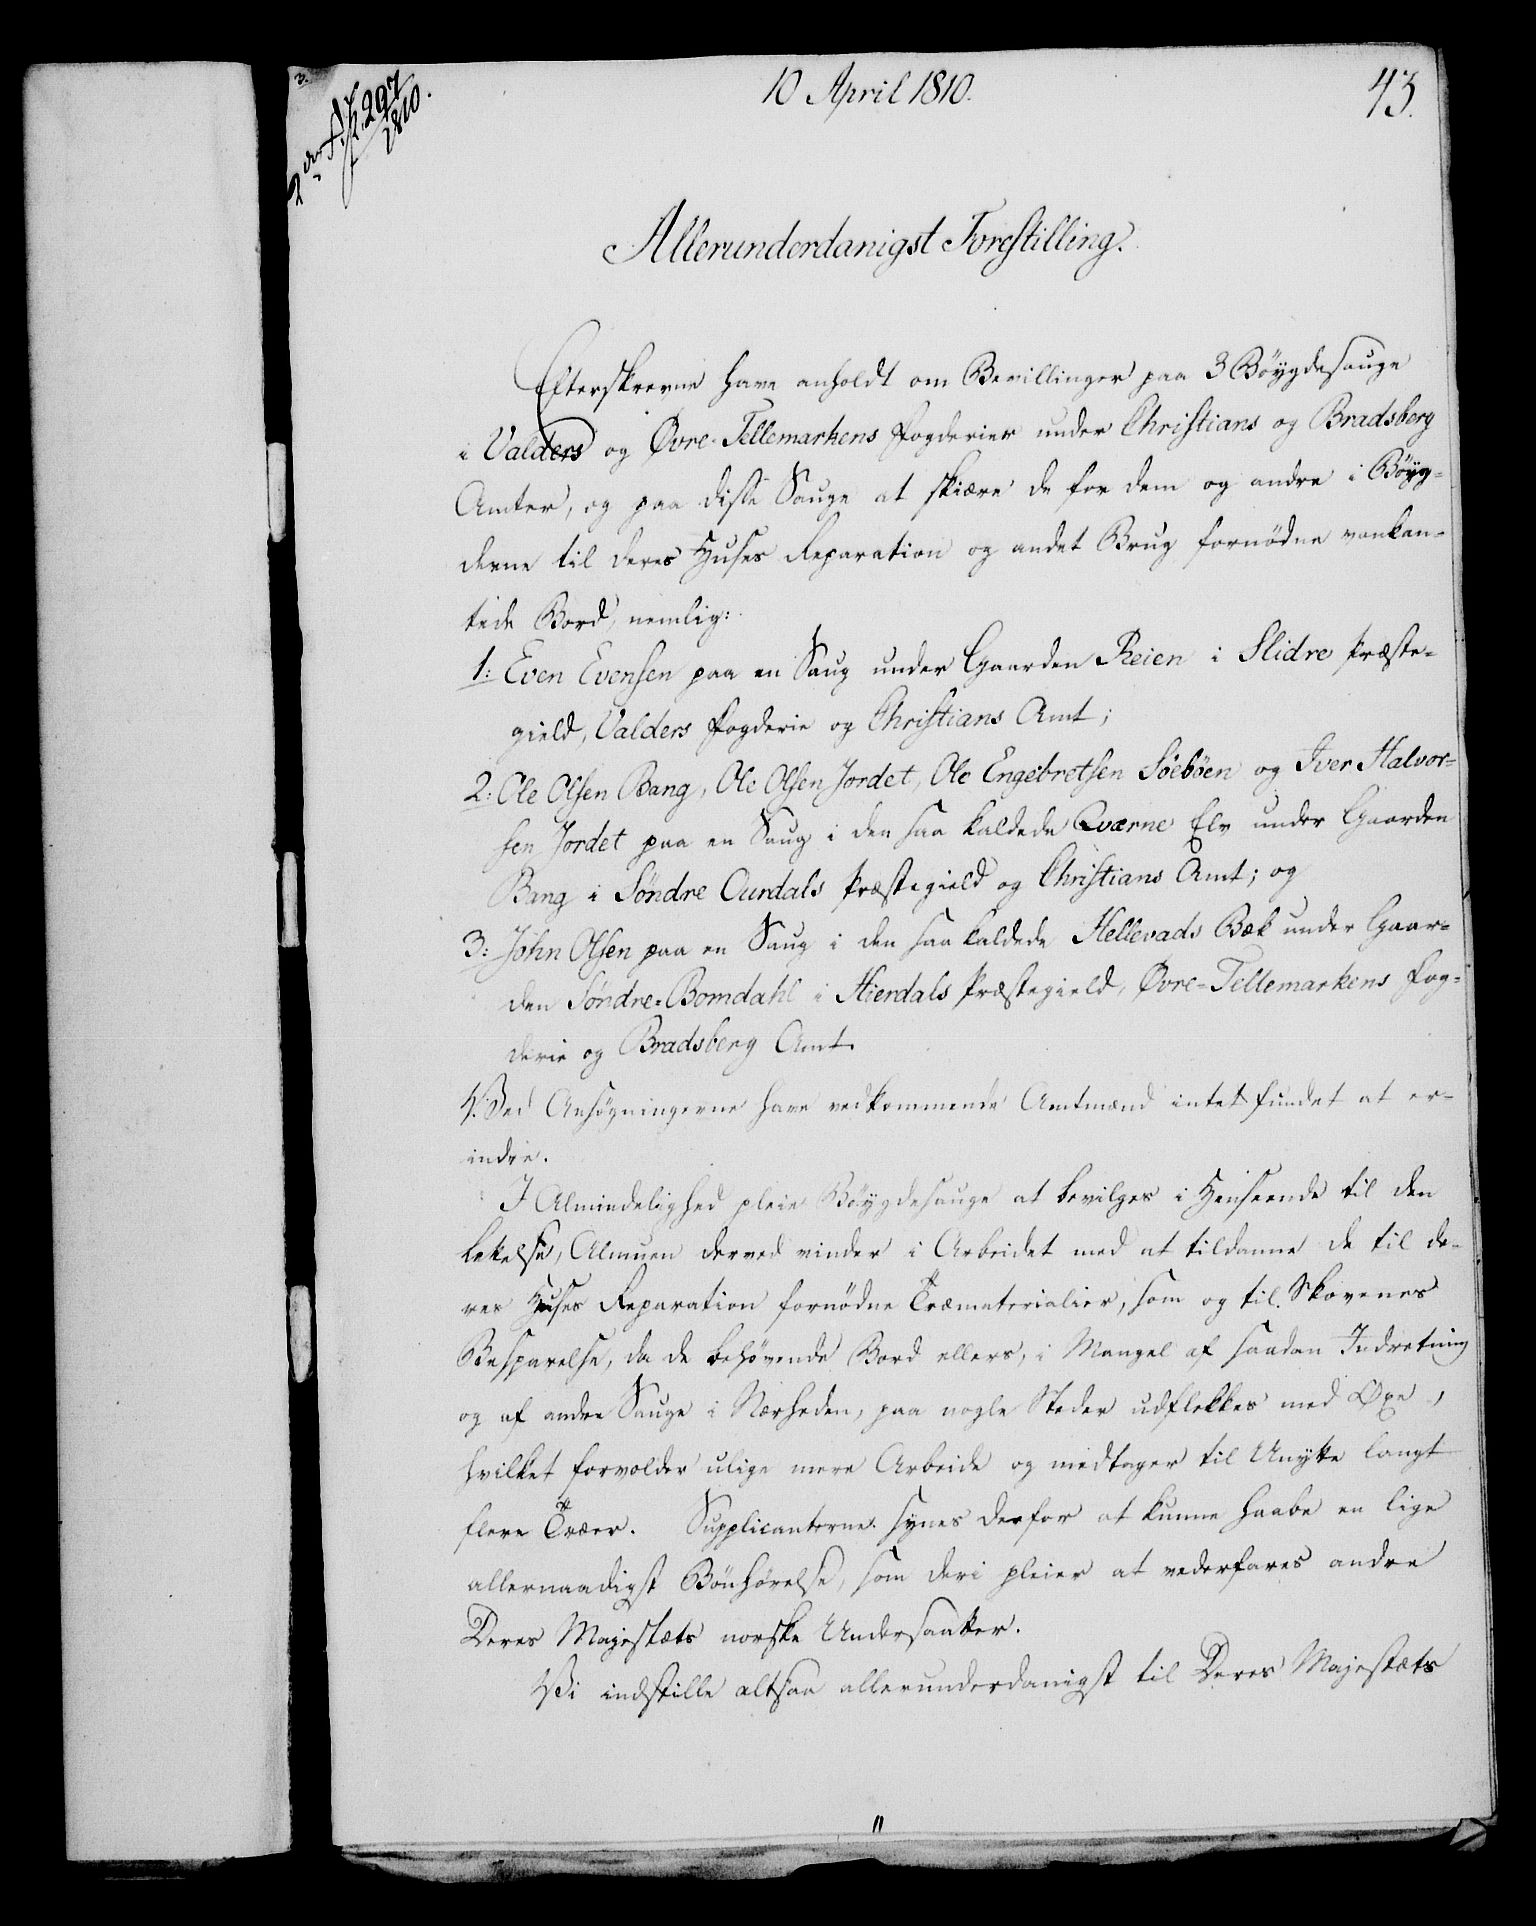 10 April 1810.
43.
2den F. K. 297
1810.
Allerunderdanigst Forestilling.
Efterskrevne have anholdt om Bevillinger paa 3 Böygdesauge
i Valders og Øvre-Tellemarkens Fogderier under Christians og Bradsberg
Amter, og paa disse Sauge at skiære de for dem og andre i Böyg-
derne til deres Huses Reparation og andet Brug fornödne vankan-
tede Bord, nemlig:
1: Even Evensen paa en Saug under Gaarden Reien i Slidre Præste-
gield, Valders Fogderie og Christians Amt;
2: Ole Olsen Bang, Ole Olsen Jordet, Ole Engebretsen Söeböen og Iver Halvor-
sen Jordet paa en Saug i den saa kaldede Qværne Elv under Gaarden
Bang i Söndre Aurdals Præstegield og Christians Amt; og
3: John Olsen paa en Saug i den saa kaldede Hellevads Bæk under Gaar-
den Söndre-Bomdahl i Hierdals Præstegield, Øvre-Tellemarkens Fog-
derie og Bradsberg Amt.
Ved Ansøgningerne have vedkommende Amtmænd intet fundet at er-
indre.
I Almindelighed pleie Böygdesauge at bevilges i Henseende til den
Lettelse, Almuen derved vinder i Arbeidet med at tildanne de til de-
res Huses Reparation fornödne Træmaterialier, som og til Skovenes
Besparelse, da de behøvende Bord ellers, i Mangel af saadan Indretning
og af andre Sauge i Nærheden, paa nogle Steder udflekkes med Øxe,
hvilket forvolder ulige mere Arbeide og medtager til Unytte langt
flere Træer. Supplicanterne synes derfor at kunne haabe en lige
allernaadigst Bönhörelse, som deri pleier at vederfares andre
Deres Majestæts norske Undersaatter.
Vi indstille altsaa allerunderdanigst til Deres Majestæts